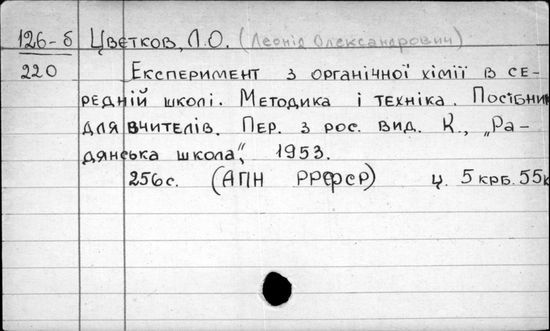 126-б Цвєтков, Л.О. (Леонід Олександрович)
220 Експеримент з органічної хімії в се-
редній школі. Методика і техніка. Посібник
для вчителів. Пер. з рос. вид. К., „Ра-
дянська школа", 1953.
256с. (АПН РРФСР) Ц. 5 крб. 55к